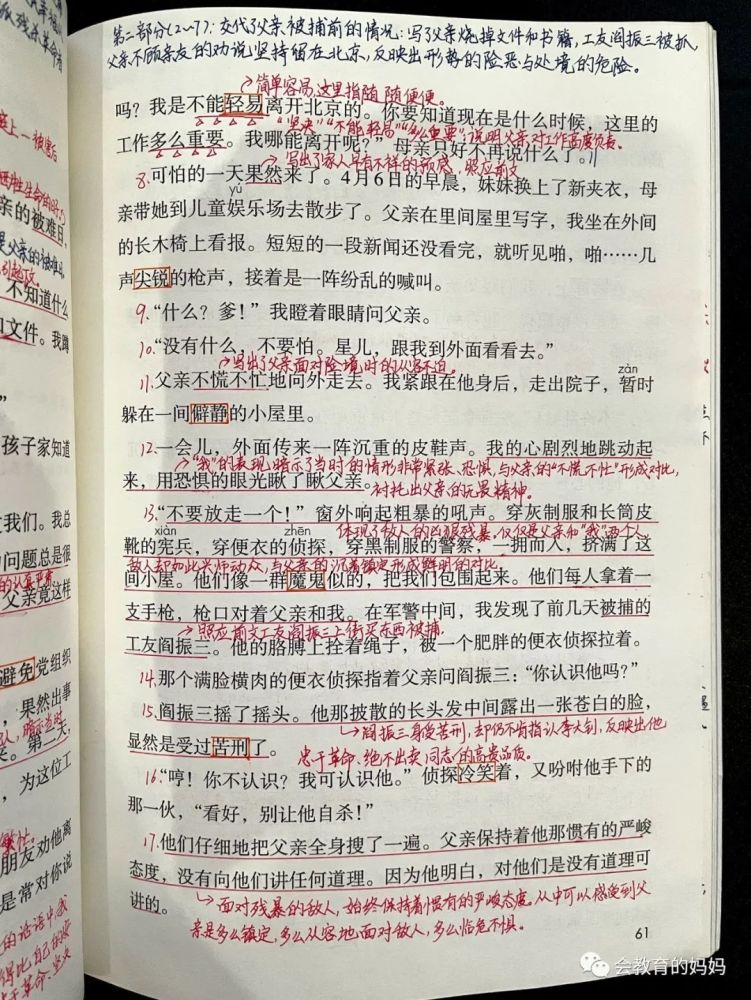 第二部分(2~7)：交代了父亲被捕前的情况：写了父亲烧掉文件和书籍，工友阎振三被抓，
父亲不顾亲友的劝说坚持留在北京，反映出形势的险恶与处境的危险。
简单容易，这里指随随便便。
吗？我是不能轻易离开北京的。你要知道现在是什么时候，这里的
"坚决""不能轻易""多么重要"，说明父亲对工作高度负责。
工作多么重要。我哪能离开呢？”母亲只好不再说什么了。
写出了家人早有不祥的预感，照应前文
8.可怕的一天果然来了。4月6日的早晨，妹妹换上了新夹衣，母
yú
亲带她到儿童娱乐场去散步了。父亲在里间屋里写字，我坐在外间
的长木椅上看报。短短的一段新闻还没看完，就听见啪，啪……几
声尖锐的枪声，接着是一阵纷乱的喊叫。
9.“什么？爹！”我瞪着眼睛问父亲。
10.“没有什么，不要怕。星儿，跟我到外面看看去。”
写出了父亲面对险境时的从容不迫。
zàn
11.父亲不慌不忙地向外走去。我紧跟在他身后，走出院子，暂时
躲在一间僻静的小屋里。
12.一会儿，外面传来一阵沉重的皮鞋声。我的心剧烈地跳动起
"我"的表现，暗示了当时的情形非常紧张、恐惧，与父亲的"不慌不忙"形成对比，
来，用恐惧的眼光瞅了瞅父亲。
衬托出父亲的无畏精神。
13.“不要放走一个！”窗外响起粗暴的吼声。穿灰制服和长筒皮
xiàn
zhēn
体现了敌人的凶狠残暴，仅仅是父亲和"我"两个人，
靴的宪兵，穿便衣的侦探，穿黑制服的警察，一拥而入，挤满了这
敌人却如此兴师动众，与父亲的沉着镇定形成鲜明的对比。
间小屋。他们像一群魔鬼似的，把我们包围起来。他们每人拿着一
支手枪，枪口对着父亲和我。在军警中间，我发现了前几天被捕的
照应前文工友阎振三上街买东西被捕。
工友阎振三。他的胳膊上拴着绳子，被一个肥胖的便衣侦探拉着。
14.那个满脸横肉的便衣侦探指着父亲问阎振三：“你认识他吗？”
15.阎振三摇了摇头。他那披散的长头发中间露出一张苍白的脸，
阎振三身受苦刑，却仍不肯指认李大钊，反映出他
显然是受过苦刑了。
忠于革命、绝不出卖同志的高贵品质。
16.“哼！你不认识？我可认识他。”侦探冷笑着，又吩咐他手下的
那一伙，“看好，别让他自杀！”
17.他们仔细地把父亲全身搜了一遍。父亲保持着他那惯有的严峻
态度，没有向他们讲任何道理。因为他明白，对他们是没有道理可
讲的。
面对残暴的敌人，始终保持着惯有的严峻态度。从中可以感受到父
亲是多么镇定，多么从容地面对敌人，多么临危不惧。
61
会教育的妈妈
亲的被难日，
不知道什么
和文件。我蹲
孩子家知道
过我们。我总
的问题总是很
父亲竟这样
避免党组织
，果然出事
第二天，
，为这位工
朋友劝他离
是常对你说